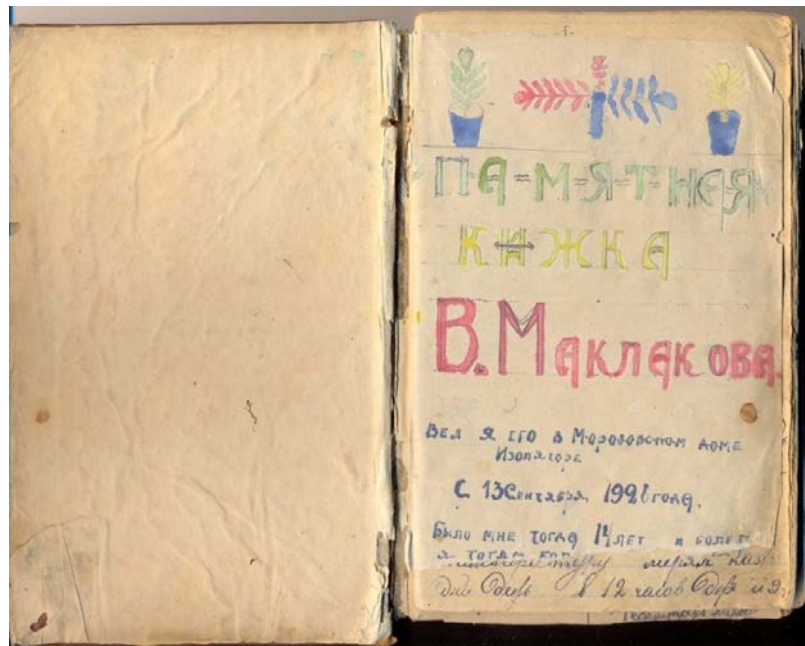 ПА=М=Я=Т=НАЯ
КНЖКА
В. МАКЛАКОВА.
ВЕЛ Я ЕГО В МОРОЗОВСКОМ ДОМЕ
ИЗОЛЯТОРЕ
С 13 СЕНТЯБРЯ 1921 ГОДА.
БЫЛО МНЕ ТОГДА 14 ЛЕТ И БОЛЕЛ
Я ТОГДА
мерял
В 12 часов